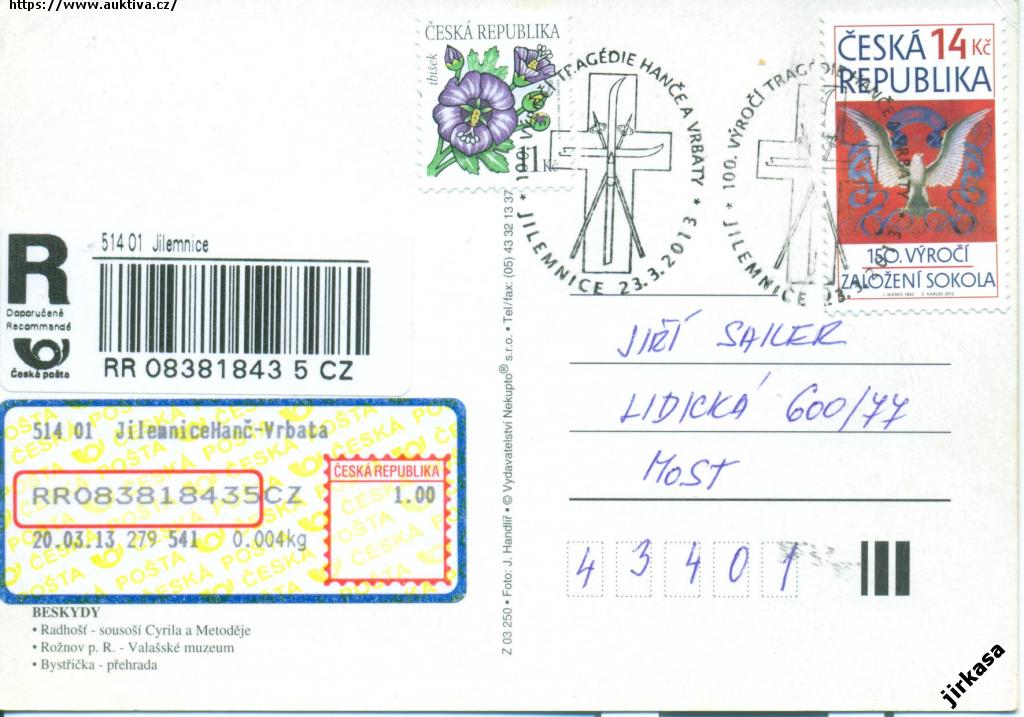 https://www.auktiva.cz/
ČESKÁ REPUBLIKA
ibišek
1 Kč
ČESKÁ 14 Kč
REPUBLIKA
150. VÝROČÍ
ZALOŽENÍ SOKOLA
100. VÝROČÍ TRAGÉDIE HANČE A VRBATY
* JILEMNICE 23.3.2013 *
100. VÝROČÍ TRAGÉDIE HANČE A VRBATY
* JILEMNICE 23.3.
R
Doporučeně
Recommandé
Česká pošta
514 01 Jilemnice
RR 08381843 5 CZ
514 01 JilemniceHanč-Vrbata
RR083818435CZ
20.03.13 279 541 0.004kg
ČESKÁ REPUBLIKA
1.00
JIŘÍ SAILER
LIDICKÁ 600/77
MOST
43401
Z 03 250 • Foto: J. Handlíř • © Vydavatelství Nekupto® s.r.o. • Tel/fax: (05) 43 32 13 37
BESKYDY
• Radhošť - sousoší Cyrila a Metoděje
• Rožnov p. R. - Valašské muzeum
• Bystřička - přehrada
jirkasa